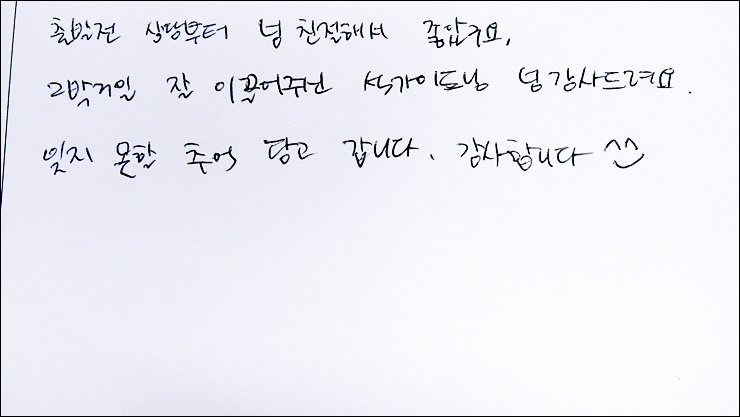 출발전 상담부터 넘 친절해서 좋았구요,
2박3일 잘 이끌어주신 석가이드님 넘 감사드려요.
잊지 못할 추억 담고 갑니다. 감사합니다 ^^